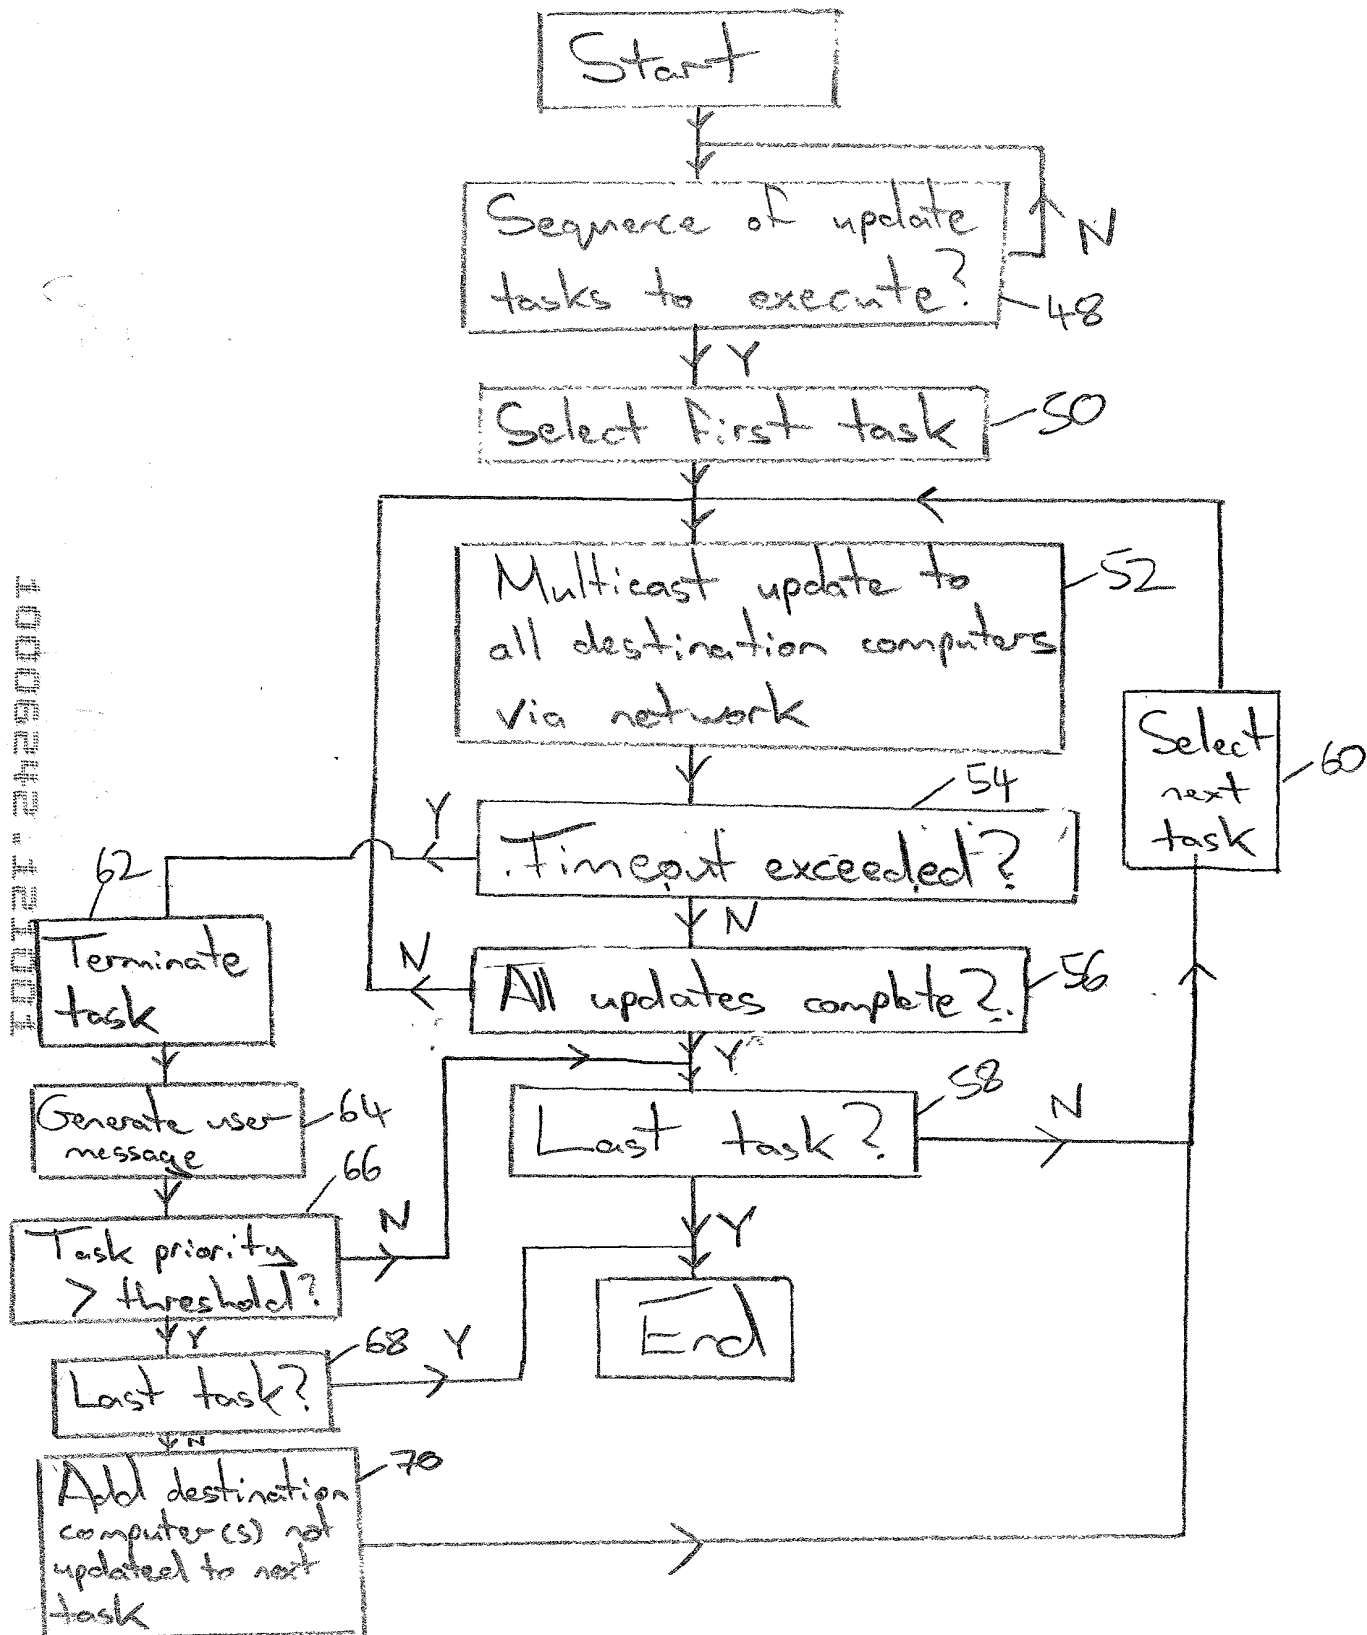 Start
Sequence of update
tasks to execute?
N
48
Y
Select first task
50
Multicast update to
all destination computers
via network
52
Select
next
task
60
54
Y
Timeout exceeded?
62
N
Terminate
task
N
All updates complete?
56
Y
Generate user
message
64
Last task?
58
N
66
Task priority
> threshold?
N
Y
End
Y
Last task?
68
Y
N
Add destination
computer(s) not
updated to next
task
70
10006242.121001